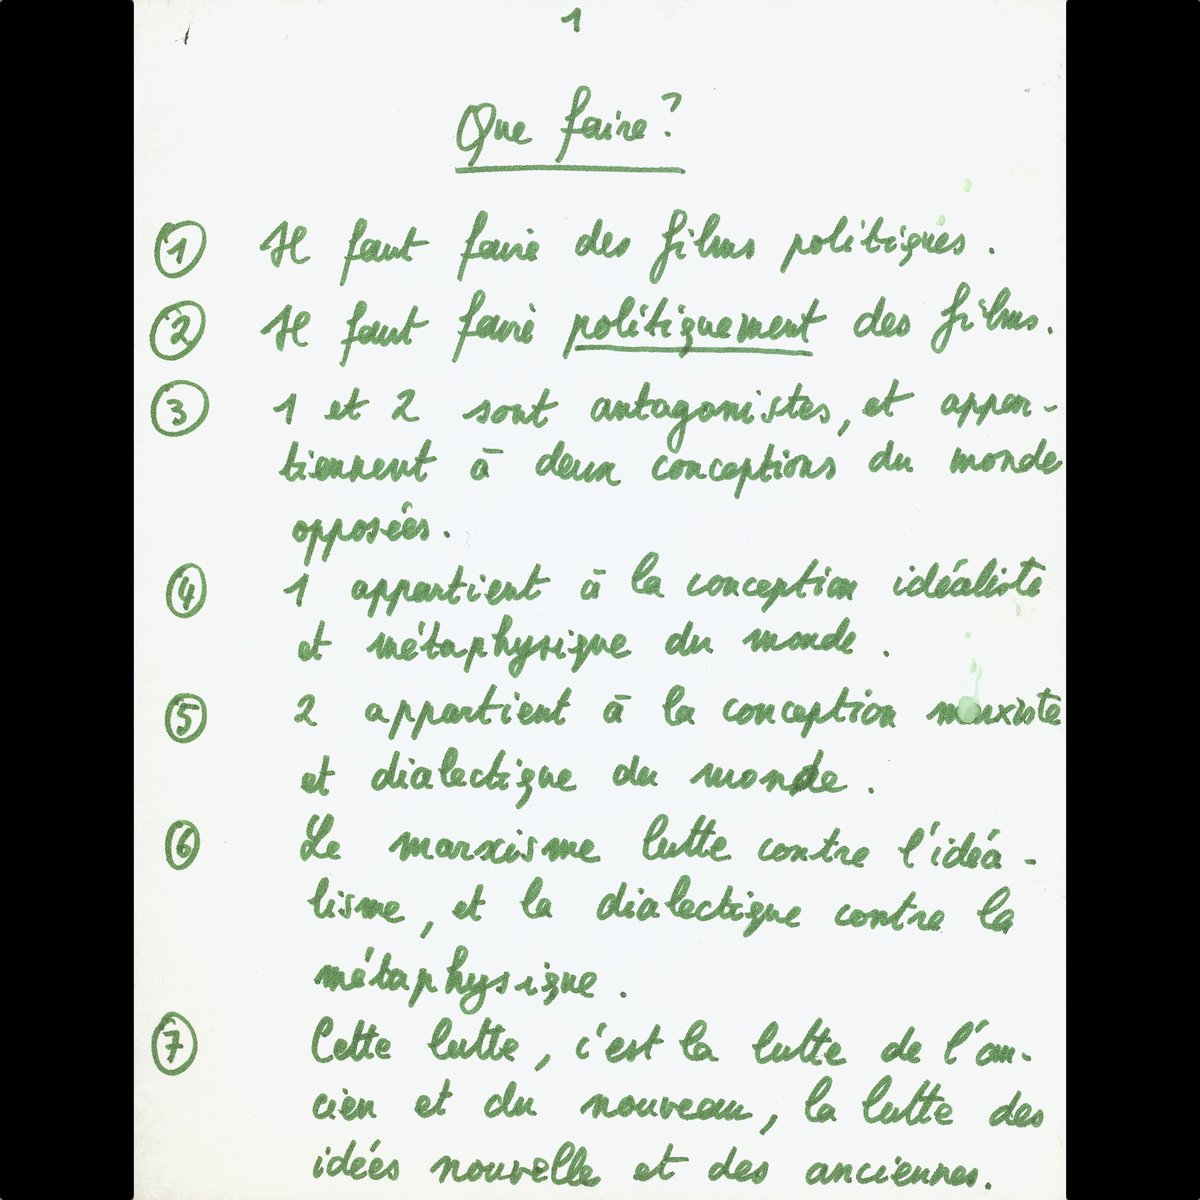 1
Que faire?
1 Il faut faire des films politiques.
2 Il faut faire politiquement des films.
3 1 et 2 sont antagonistes, et appar-
tiennent à deux conceptions du monde
opposées.
4 1 appartient à la conception idéaliste
et métaphysique du monde.
5 2 appartient à la conception marxiste
et dialectique du monde.
6 Le marxisme lutte contre l'idéa-
lisme, et la dialectique contre la
métaphysique.
7 Cette lutte, c'est la lutte de l'an-
cien et du nouveau, la lutte des
idées nouvelle et des anciennes.